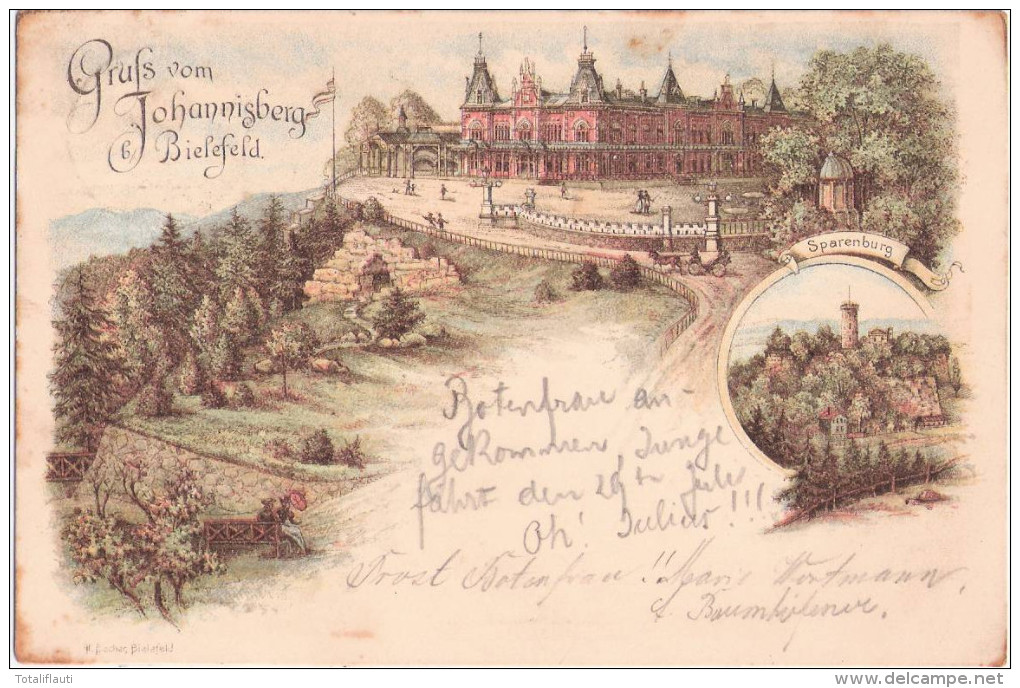 Gruß vom
Johannisberg
b. Bielefeld.
Sparenburg
Botenfrau an-
gekommen, Junge
fährt den 26ten Juli
Oh! Julius!!!
Prost Botenfrau!! Marie Wortmann
Bielefeld
Totaliflauti
www.delcampe.net